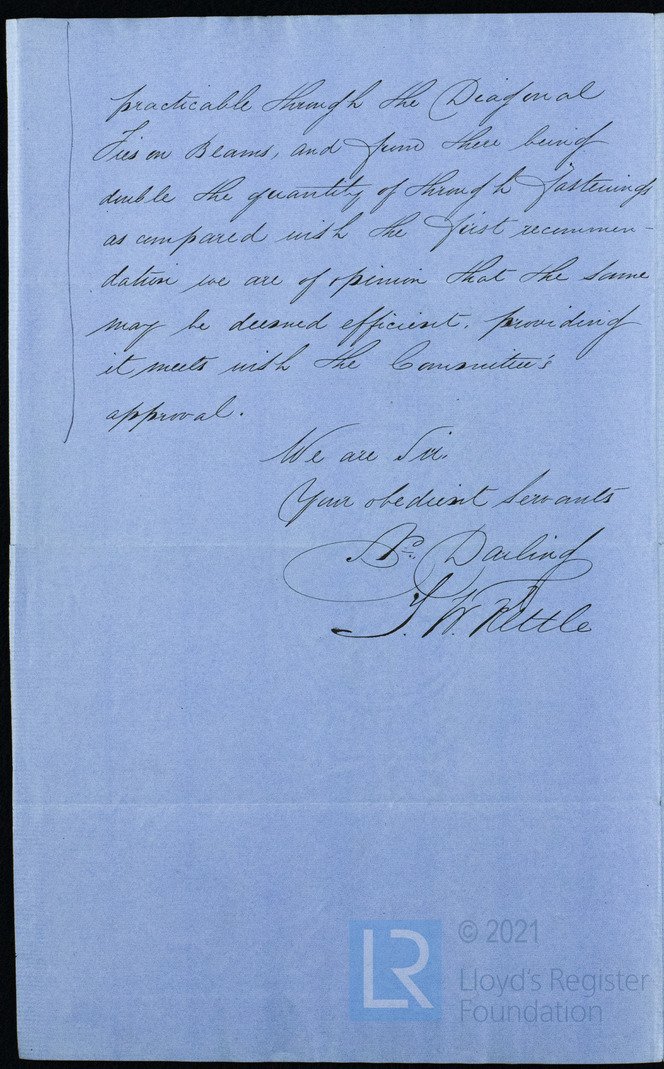 practicable through the Diagonal
Ties on Beams, and from there being
double the quantity of through fastenings
as compared with the first recommen-
dation we are of opinion that the same
may be deemed efficient, providing
it meets with the Committee's
approval.
We are Sir,
Your obedient Servants
Darling
J. W. Kettle
© 2021
LR
Lloyd's Register
Foundation